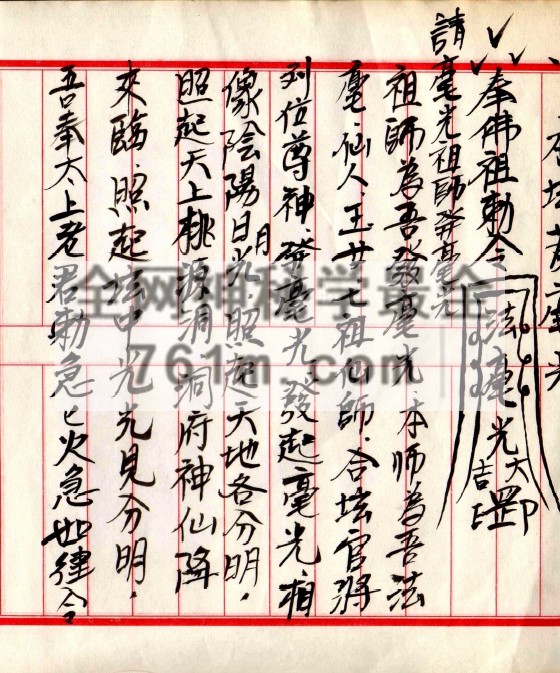 奉佛祖勅令
大罡
吉
請毫光祖師發毫光
祖師為吾發毫光本師為吾法
毫、仙人玉女七祖仙師、合壇官將
列位尊神、發毫光、發起毫光、相
像陰陽日月光、照起天地各分明、
照起天上桃源洞、洞府神仙降
來臨、照起壇中光光見分明、
吾奉太上老君勅急急火急如律令
全网神秘学最全
761m.com